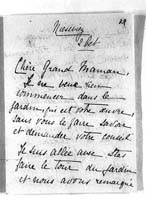 29
2 Oct.
Chère Grand Maman,
Je ne veux rien
commencer dans le
jardin qui est votre œuvre
sans vous le faire savoir
et demander votre conseil
Je suis allée avec
faire le tour du jardin
et nous avons remarqué